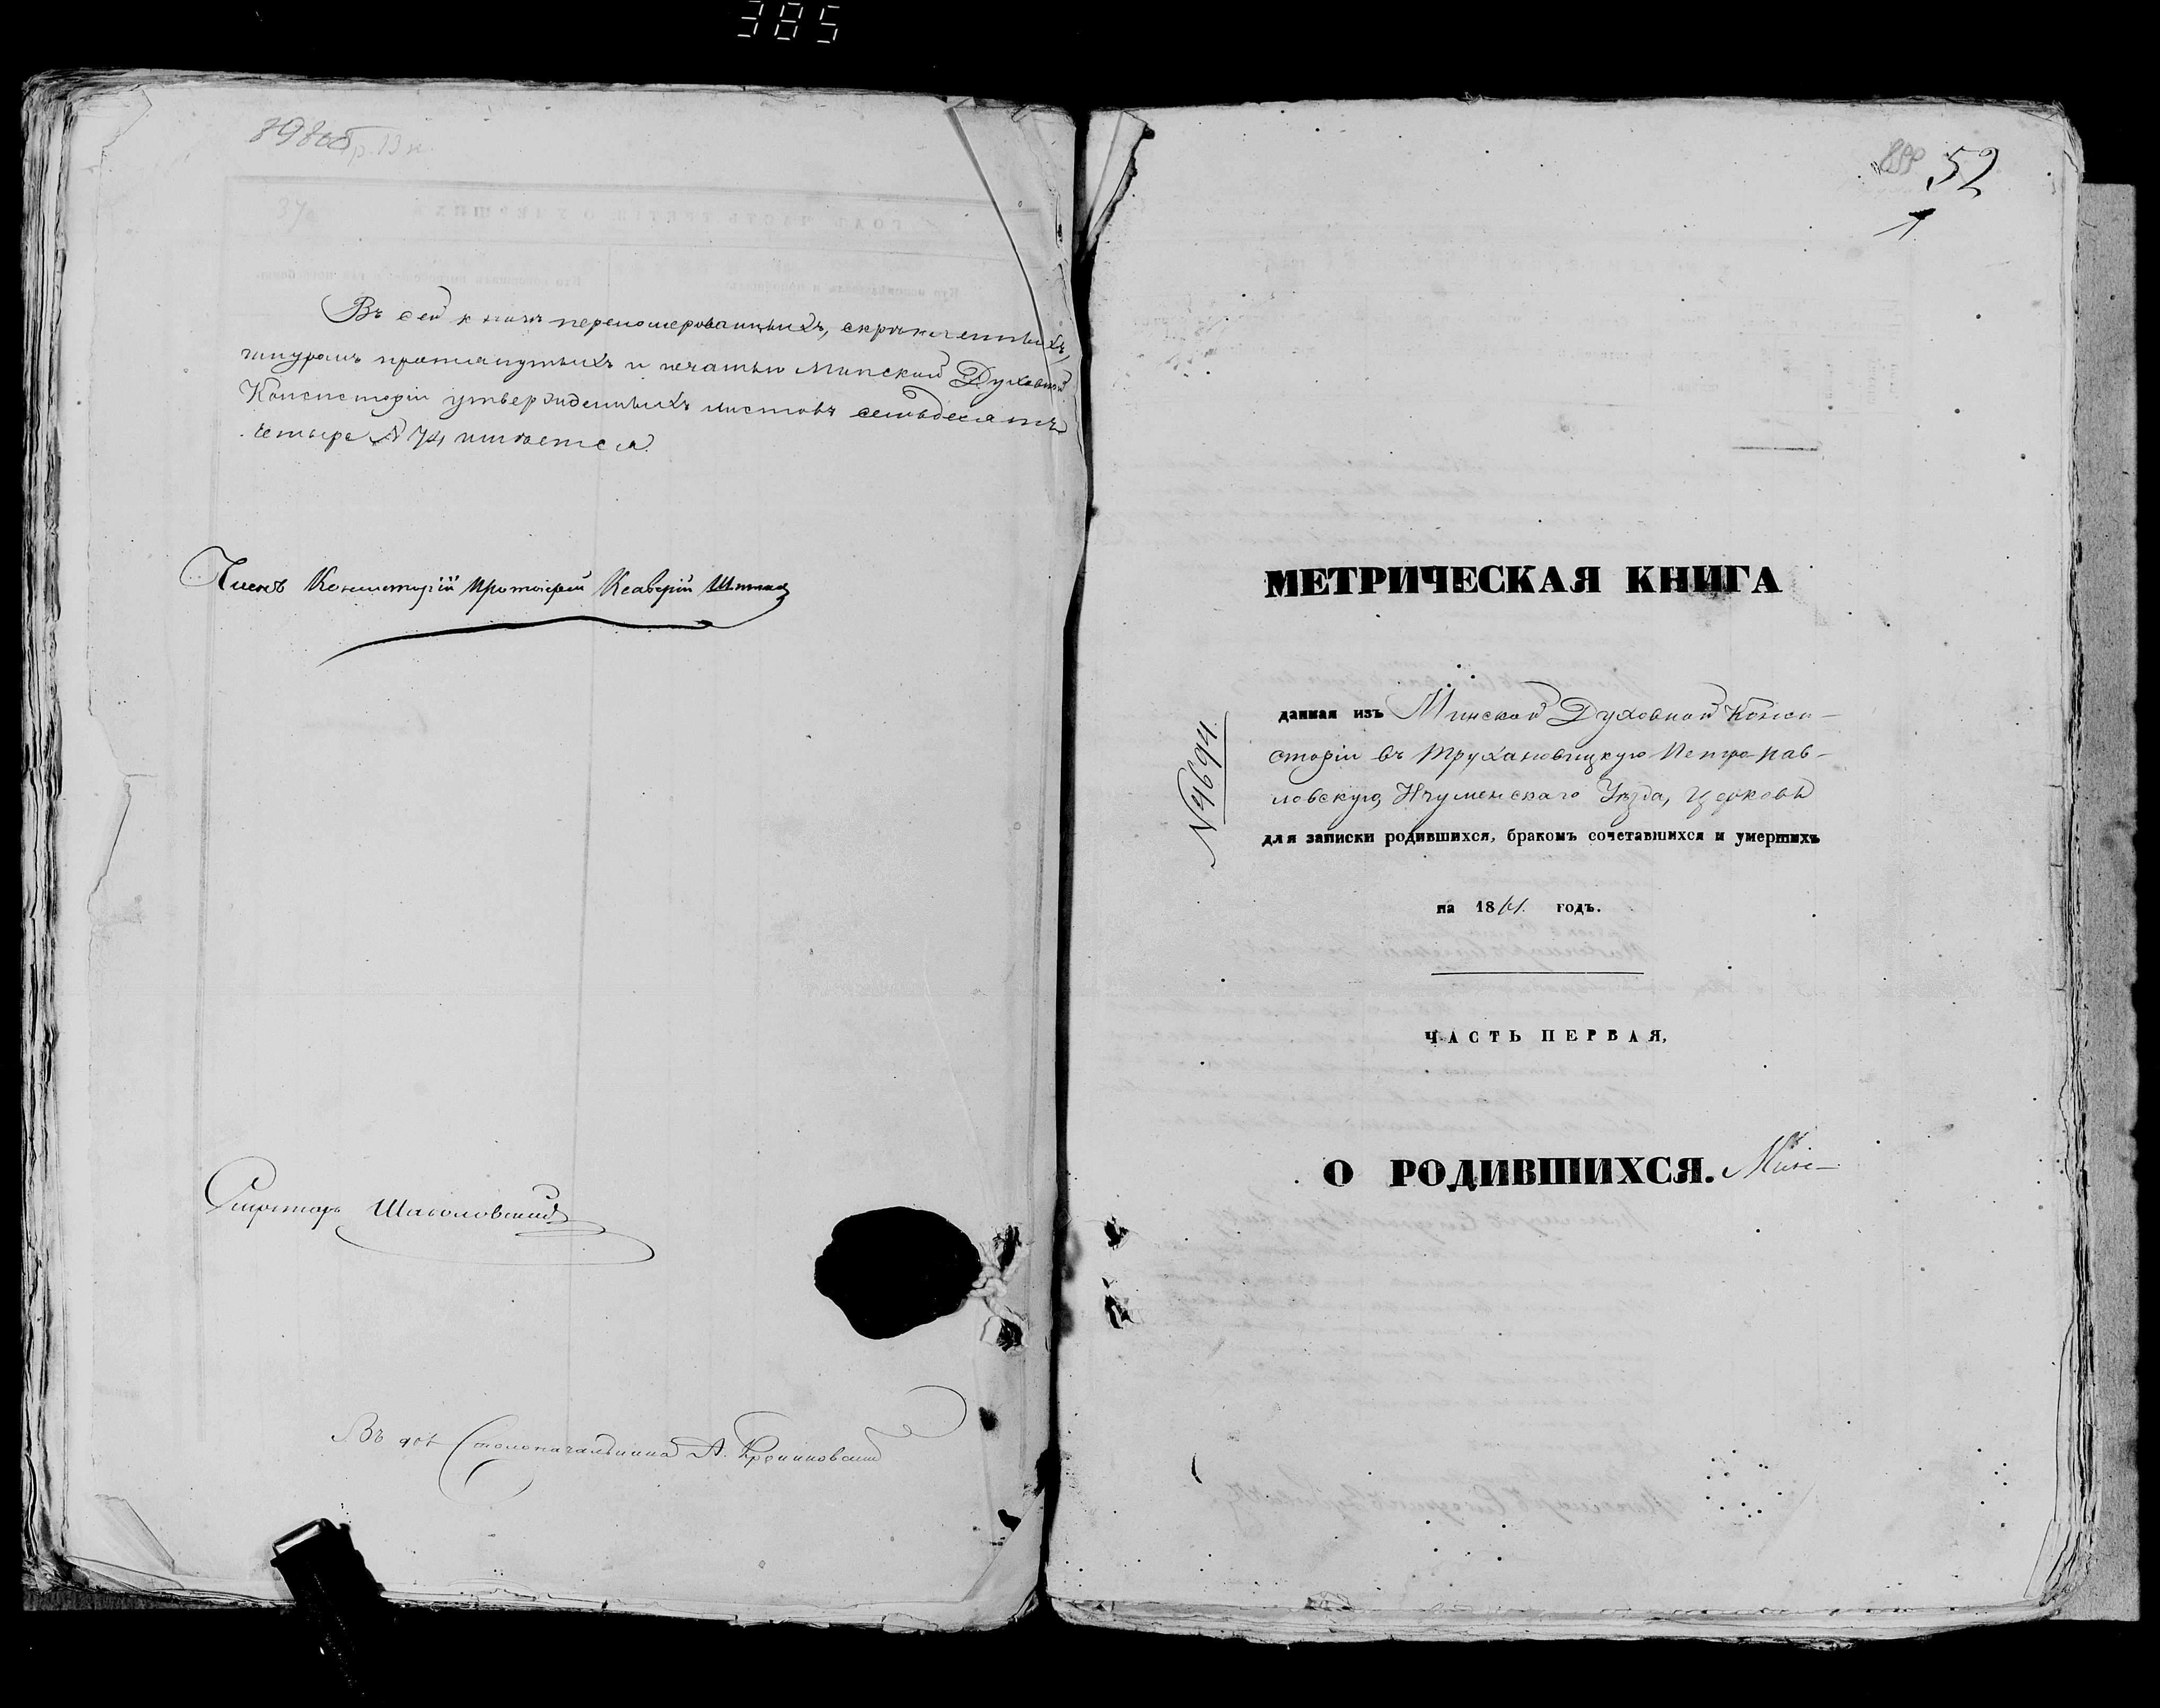 385
Въ сей книгѣ перенумерованныхъ, скрѣпленныхъ,
шнуромъ протянутыхъ и печатью Минской Духовной
Консисторіи утвержденныхъ листовъ семьдесятъ
четыре № 74 имѣется.
Членъ Консисторіи Протоіерей Ксаверій
Секретарь
Столоначальника А.
52
МЕТРИЧЕСКАЯ КНИГА
данная изъ Минской Духовной Конси-
сторіи въ Трухановицкую Петро-Пав-
ловскую, Игуменскаго Уѣзда, церковь
для записки родившихся, бракомъ сочетавшихся и умершихъ
на 18 годъ.
ЧАСТЬ ПЕРВАЯ,
О РОДИВШИХСЯ.